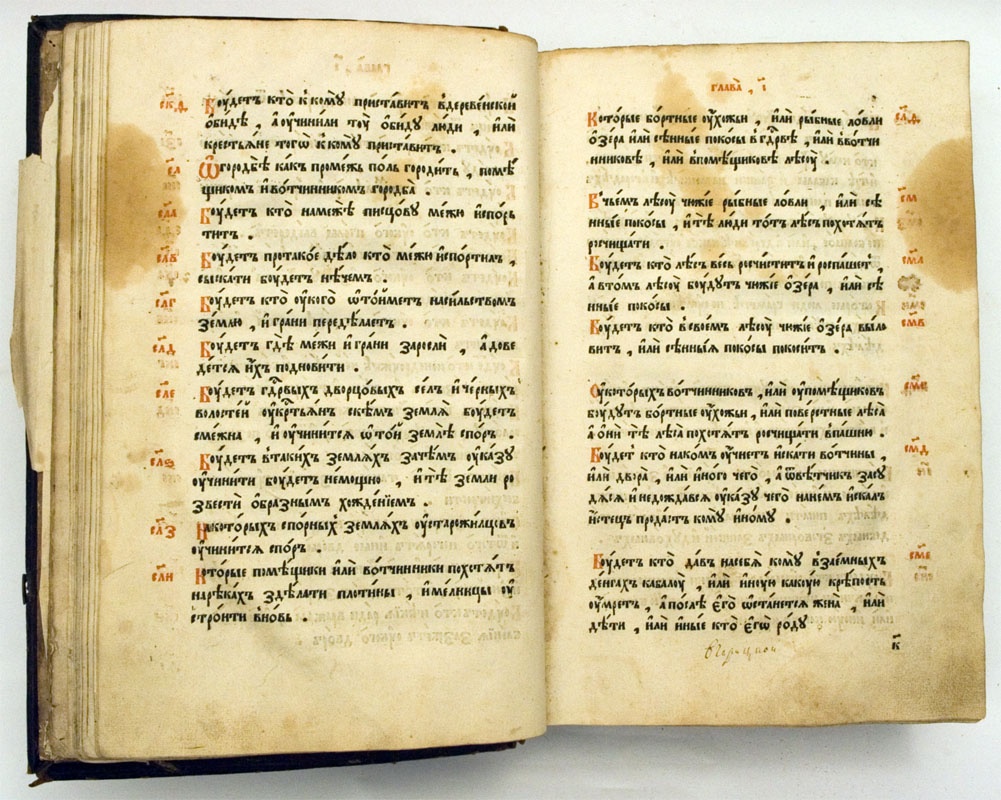 глава̀ , і҃
Боу́детъ кто̀ к комꙋ̀ приста́витъ в дереве́нской
ѻби́дѣ , а оу҆чини́ли тоу̀ ѻби́дꙋ лю́ди , и҆лѝ
крестья́не тогѡ̀ к комꙋ̀ приста́витъ .
Ѿ городбѣ̀ ка́къ проме́жъ по́ль городи́ть , помѣ́
щикомъ и҆ во́тчинникомъ городба̀ .
Боу́детъ кто̀ на межѣ̀ писцо́вꙋ межꙋ̀ и҆спо́рь
титъ .
Боу́детъ про тако́е дѣ́ло кто̀ межѝ и҆спо́ртилъ ,
сыска́ти боу́детъ не́чемъ .
Боу́детъ кто̀ оу҆ кого̀ ѿто́йметъ наси́льствомъ
зе́млю , и҆ гра́ни передѣ́лаетъ .
Боу́детъ гдѣ̀ межѝ и҆ гра́ни зарослѝ , а дове
де́тся и҆́хъ поднови́ти .
Боу́детъ гд҃рвыхъ дворцо́выхъ се́лъ и҆ че́рныхъ
волосте́й оу҆ кр҃тья́нъ с ке́мъ земля̀ боу́детъ
сме́жна , и҆ оу҆чини́тся ѡ то́й землѣ̀ спо́ръ .
Боу́детъ в таки́хъ земля́хъ заче́мъ оу҆ка́зꙋ
оу҆чини́ти боу́детъ немо́щно , и҆ тѣ̀ зе́мли ро
звестѝ ѻ́бразнымъ хожде́нїемъ .
На кото́рыхъ спо́рныхъ земля́хъ оу҆ старожи́лцовъ
оу҆чини́тся спо́ръ .
Кото́рые помѣ́щики и҆лѝ во́тчинники похотя́тъ
на рѣка́хъ здѣ́лати плоти́ны , и҆ ме́лницы оу҆
стро́ити вно́вь .
глава̀ , і҃
Кото́рые бо́ртные оу҆хо́жьи , и҆лѝ ры́бные ло́вли
ѻзе́ра и҆лѝ сѣ́нные поко́сы в гд҃рвѣ , и҆лѝ в во́тчи
нниковѣ , и҆лѝ в помѣ́щиковѣ лѣсоу̀ .
В чье́мъ лѣсоу̀ чюжі́е ры́бные ло́вли , и҆лѝ сѣ
нны́е поко́сы , и҆ тѣ̀ лю́ди то́тъ лѣ́съ похотя́тъ
росчища́ти .
Боу́детъ кто̀ лѣ́съ ве́сь росчи́ститъ и҆ роспа́шетъ ,
а в то́мъ лѣсоу̀ боу́дутъ чюжі́е ѻзе́ра , и҆лѝ сѣ
нны́е поко́сы .
Боу́детъ кто̀ в свое́мъ лѣсоу̀ чюжі́е ѻзе́ра вы́ло
витъ , и҆лѝ сѣ́нныя поко́сы поко́ситъ .
Оу҆ кото́рыхъ во́тчинниковъ , и҆лѝ оу҆ помѣ́щиковъ
боу́дутъ бо́ртные оу҆хо́жьи , и҆лѝ пове́рстные лѣса̀
а ѻнѝ тѣ̀ лѣса̀ похотя́тъ росчища́ти в па́шню .
Боу́детъ кто̀ на ко́мъ оу҆чнетъ и҆ска́ти во́тчины ,
и҆лѝ двора̀ , и҆лѝ и҆но́го чего̀ , а ѿвѣ́тчикъ засꙋ
дя́ся и҆ недожда́вся оу҆ка́зꙋ чего̀ на не́мъ и҆ска́лъ
и҆сте́цъ прода́стъ комꙋ̀ и҆но́мꙋ .
Боу́детъ кто̀ да́въ на себя̀ комꙋ̀ в зае́мныхъ
де́нгахъ кабалоу̀ , и҆лѝ и҆ноую каку́ю крѣ́пость
оу҆мре́тъ , а по́слѣ є҆го̀ ѡста́нется жена̀ , и҆лѝ
дѣ́ти , и҆лѝ и҆ны́е кто̀ є҆гѡ̀ ро́дꙋ
к҃
сл҃
сла҃
слв҃
слг҃
слд҃
сле҃
слѕ҃
слз҃
сли҃
слѳ҃
см҃
сма҃
смв҃
смг҃
смд҃
сме҃